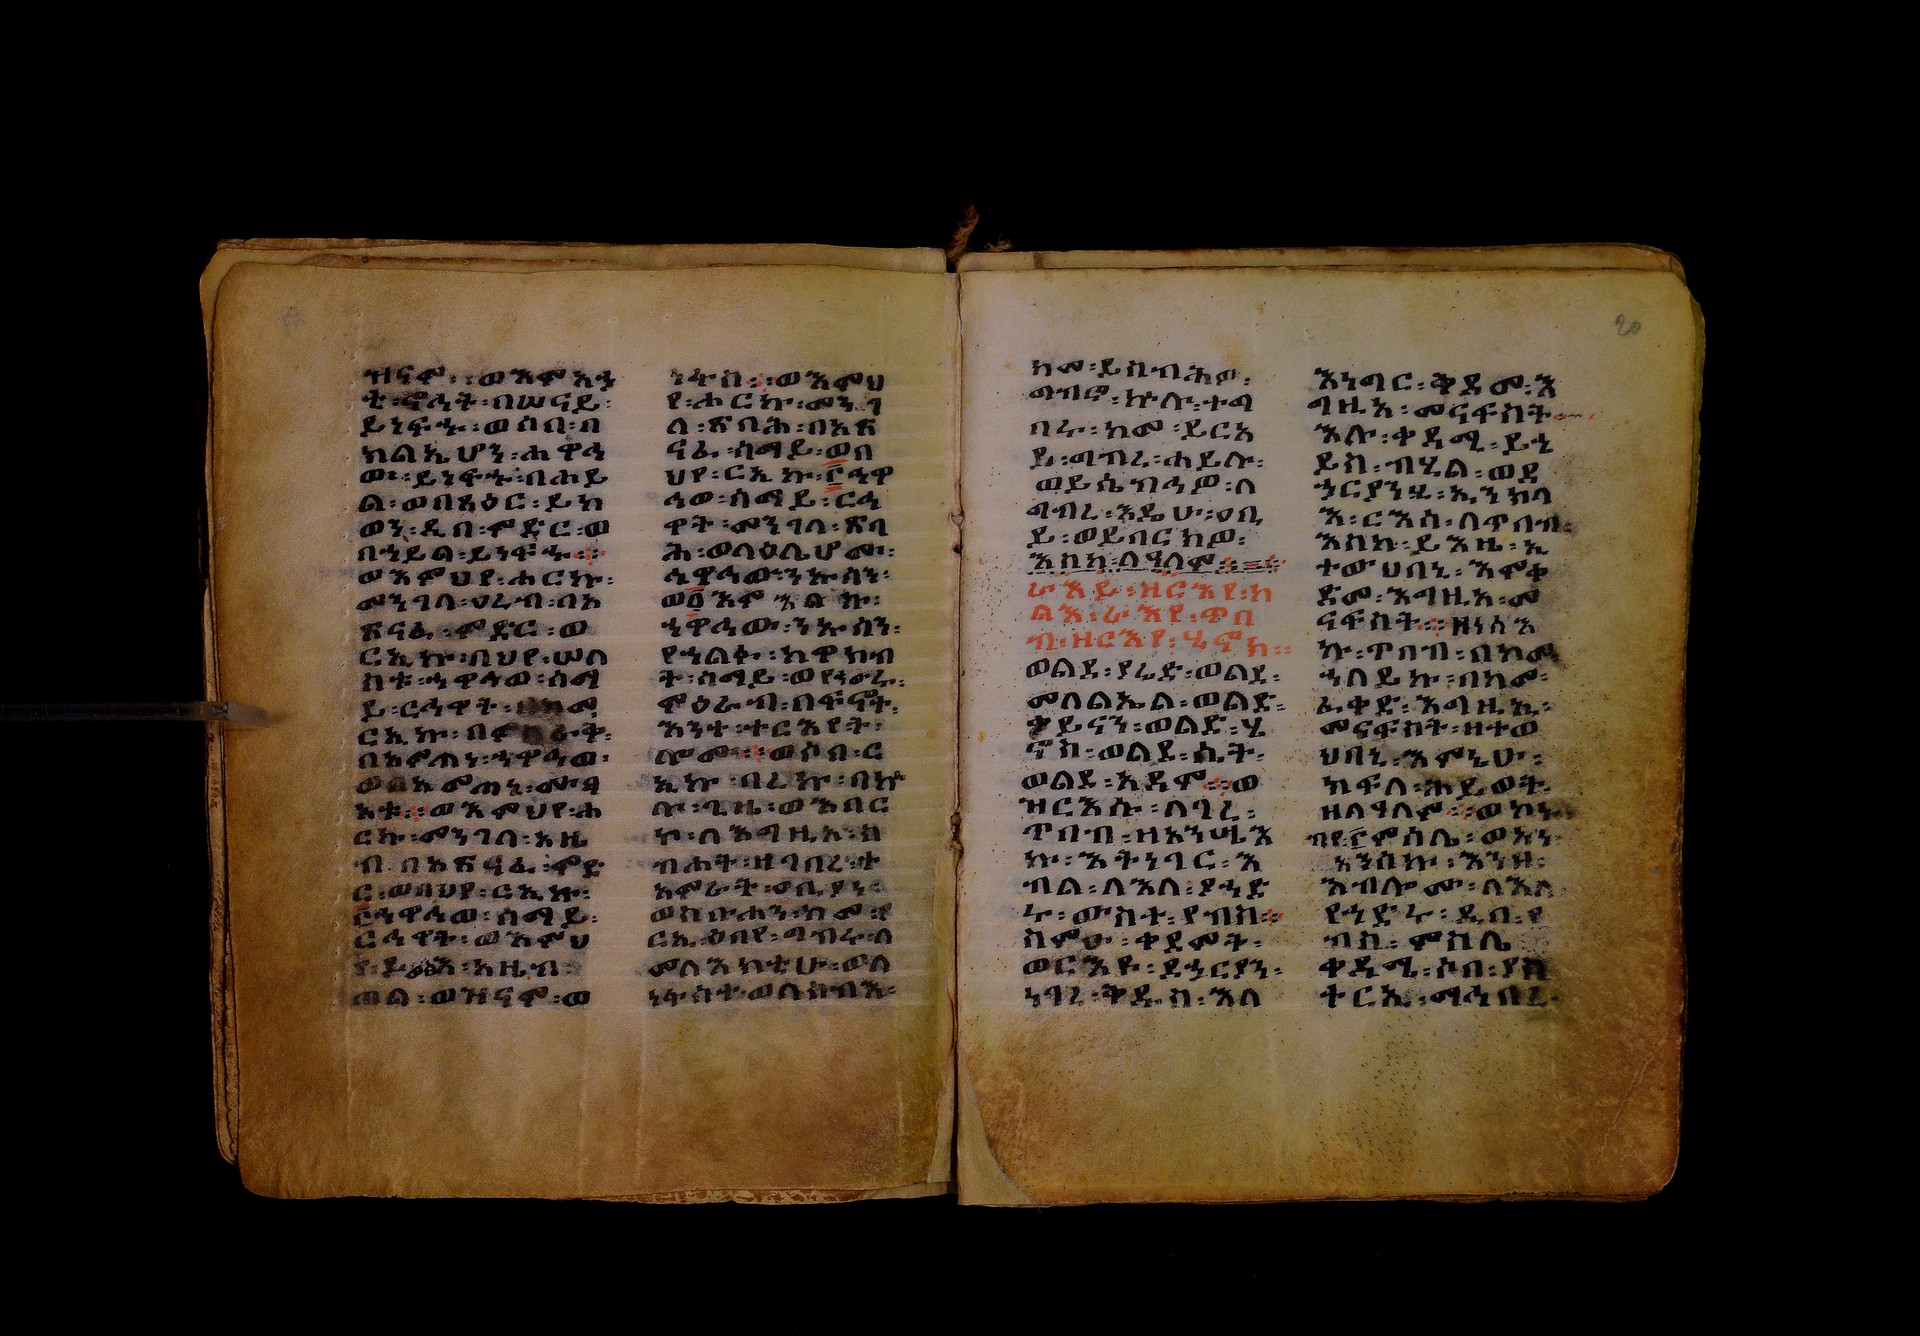 ዝናም፡፡ወእምአኀ
ቲ፡ኆኅት፡በሠናይ፡
ይነፍኁ፡ወሶበ፡በ
ክልኤሆን፡ሐዋኅ
ው፡ይነፍኁ፡በሐይ
ል፡ወበጻዕር፡ይከ
ውን፡ዲበ፡ምድር፡ወ
በኀይል፡ይነፍኁ፡፡
ወእምህየ፡ሐርኩ፡
መንገለ፡ዐረብ፡በአ
ጽናፈ፡ምድር፡ወ
ርኢኩ፡በህየ፡ሠለ
ስቱ፡ኀዋኅወ፡ሰማ
ይ፡ርኅዋት፡በከመ
ርኢኩ፡በምሥራቅ፡
በአምጠነ፡ኀዋኅወ፡
ወበአምጠነ፡ሙፃ
አቱ፡፡ወእምህየ፡ሐ
ርኩ፡መንገለ፡አዜ
ብ፡በአጽናፈ፡ምድ
ር፡ወበህየ፡ርኢኩ፡
፫ኀዋኅወ፡ሰማይ፡
ርኅዋት፡ወእምህ
የ፡ይወፅእ፡አዜብ፡
ወጠል፡ወዝናም፡ወ
ነፋስ፡፡ወእምህ
የ፡ሐርኩ፡መንገ
ለ፡ጽባሕ፡በአጽ
ናፈ፡ሰማይ፡ወበ
ህየ፡ርኢኩ፡፫ኀዋ
ኅወ፡ሰማይ፡ርኅ
ዋት፡መንገለ፡ጽባ
ሕ፡ወላዕሌሆሙ፡
ኀዋኅው፡ንኡሳን፡
ወ፩እምእልኩ፡
ኀዋኅው፡ንኡሳን፡
የኀልፉ፡ከዋክብ
ተ፡ሰማይ፡ወየሐውሩ፡
ምዕራብ፡በፍኖት፡
እንተ፡ተርእየት፡
ሎሙ፡፡ወሶበ፡ር
ኢኩ፡ባረኩ፡በኵ
ሉ፡ጊዜ፡ወእባር
ኮ፡ለእግዚአ፡ስ
ብሐት፡ዘገብረ፡ተ
አምራት፡ዐቢያነ፡
ወስቡሐነ፡ከመ፡ያ
ርኢ፡ዕበየ፡ግብሩ፡ለ
መላእክቲሁ፡ወለ
ነፍሳት፡ወለሰብእ፡
ከመ፡ይሰብሕዎ፡
ግብሮ፡ኵሎ፡ተግ
ባሩ፡ከመ፡ይርአ
ይ፡ግብረ፡ሐይሉ፡
ወይሴብሕዎ፡ለ
ግብረ፡እዴሁ፡ዐቢ
ይ፡ወይባርክዎ፡
እስከ፡ለዓለም፡፡
ራእይ፡ዘርእየ፡ካ
ልእ፡ራእየ፡ጥበ
ብ፡ዘርእየ፡ሄኖክ፡፡
ወልደ፡ያሬድ፡ወልደ፡
መላልኤል፡ወልደ፡
ቃይናን፡ወልደ፡ሄ
ኖስ፡ወልደ፡ሴት፡
ወልደ፡አዳም፡፡ወ
ዝርእሱ፡ለነገረ፡
ጥበብ፡ዘአንሣእ
ኩ፡እትነገር፡እ
ብል፡ለእለ፡የኀድ
ሩ፡ውስተ፡የብስ፡፡
ስምዑ፡ቀደምት፡
ወርእዩ፡ደኀርያን፡
ነገረ፡ቅዱስ፡እለ
እነግር፡ቅድመ፡እ
ግዚአ፡መናፍስት፡
እሉ፡ቀዳሚ፡ይኄ
ይስ፡ብሂል፡ወደ
ኃርያንሂ፡ኢንከላ
እ፡ርእሰ፡ለጥበብ፡
እስከ፡ይእዜ፡ኢ
ተውህበኒ፡እምቅ
ድመ፡እግዚአ፡መ
ናፍስት፡፡ዘነሣእ
ኩ፡ጥበብ፡በከመ
ኀለይኩ፡በከመ፡
ፈቀደ፡እግዚአ፡
መናፍስት፡ዘተው
ህበኒ፡እምኔሁ፡
ክፍለ፡ሕይወት፡
ዘለዓለም፡፡ወኮነ
ብየ፫ምሳሌ፡ወአነ፡
አንሳእኩ፡እንዘ፡
እብሎሙ፡ለእለ
የኀድሩ፡ዲበ፡የ
ብስ፡ምሳሌ
ቀዳሚ፡ሶበ፡ያስ
ተርኢ፡ማኅበረ